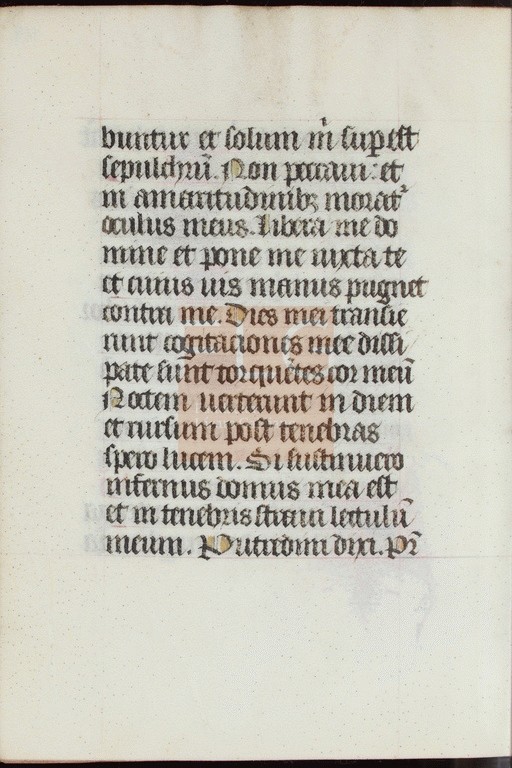 buntur et solum m̄ sup̄est
sepulchrū. Non peccaui: et
in amaritudinibꝫ morat᷑
oculus meus. Libera me do
mine et pone me iuxta te
et cuius uis manus pugnet
contra me. Dies mei transie
runt cogitaciones mee dissi
pate sunt torquētes cor meū
Noctem uerterunt in diem
et rursum post tenebras
spero lucem. Si sustinuero
infernus domus mea est
et in tenebris straui lectulū
meum. Putredini dixi. Pr̄